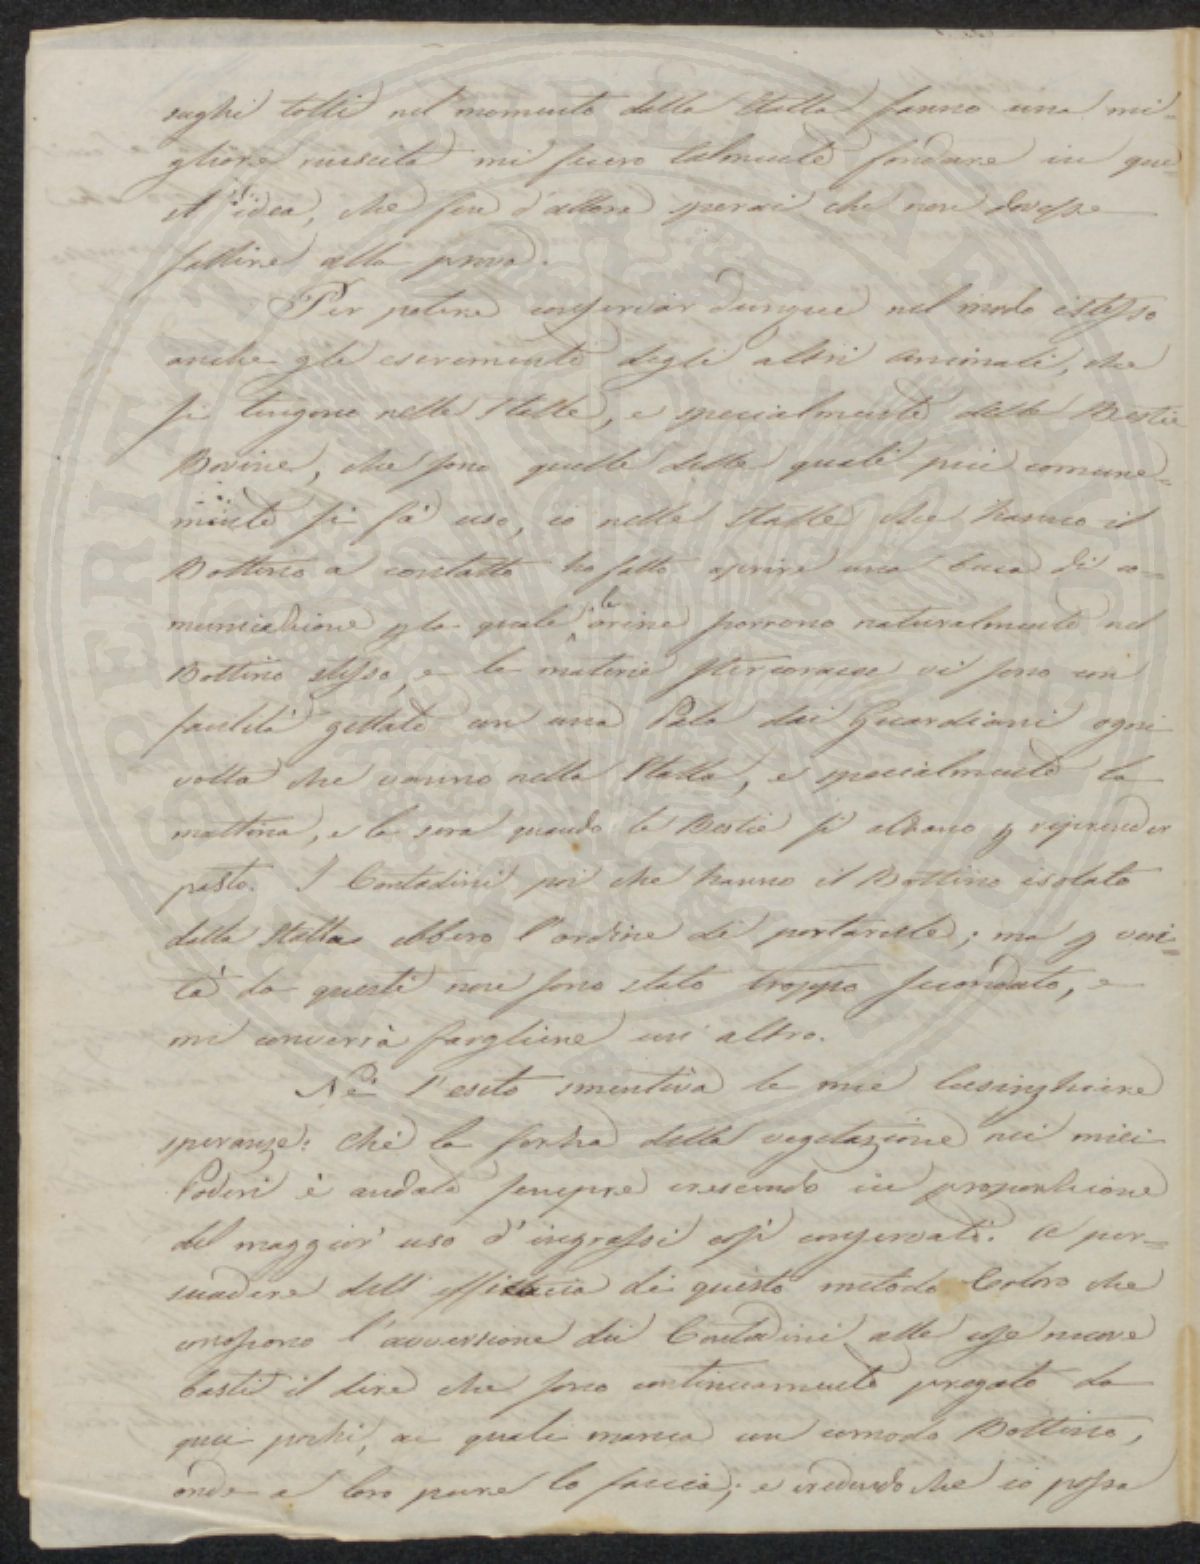 sughi tolti nel momento della Stalla fanno una mi-
gliore riuscita mi fecero talmente fondare in que-
st'idea, che fin d'allora sperai che non dovesse
fallire alla prova.
Per potere conservar dunque nel modo istesso
anche gli escrementi degli altri Animali, che
si tengono nelle Stalle, e specialmente delle Bestie
Bovine, che sono quelle delle quali più comune-
mente si fà uso, io nelle Stalle che hanno il
Bottino a contatto ho fatto aprire una buca di co-
municazione p la quale le orine scorrono naturalmente nel
Bottino stesso, e le materie stercoracee vi sono con
facilità gettate con una Pala dai Guardiani ogni
volta che vanno nella Stalla, e specialmente la
mattina, e la sera quando le Bestie si alzano p riprender
pasto. I Contadini poi che hanno il Bottino isolato
dalla Stalla ebbero l'ordine di portarcele; ma p veri-
tà da questi non sono stato troppo secondato, e
mi converrà fargliene un altro.
Nè l'esito smentiva le mie lusinghiere
speranze: chè la forza della vegetazione nei miei
Poderi è andata sempre crescendo in proporzione
del maggior uso d'ingrassi così conservati. A per-
suadere dell'efficacia di questo metodo Coloro che
conoscono l'avversione dei Contadini alle cose nuove
basti il dire che sono continuamente pregato da
quei pochi, ai quali manca un comodo Bottino,
onde a loro pure lo faccia; e credendo che io possa